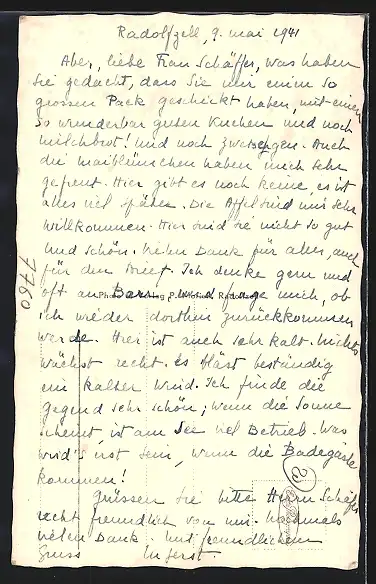 Radolfzell, 9. mai 1941
Aber, liebe Frau Schäffer, was haben
Sie gedacht, dass Sie mir einen so
grossen Pack geschickt haben, mit einem
so wunderbar guten Kuchen und noch
milchbrot! und noch zwetschgen. Auch
die maiblümchen haben mich sehr
gefreut. Hier gibt es noch keine, es ist
alles viel später. Die Äpfel sind mir sehr
willkommen. Hier sind sie nicht so gut
und schön. vielen Dank für alles, auch
für den Brief. Ich denke gern und
oft an und frage mich, ob
ich wieder dorthin zurückkommen
werde. Hier ist auch sehr kalt. nichts
wächst recht. es bläst beständig
ein kalter wind. Ich finde die
gegend sehr schön; wenn die Sonne
scheint, ist am See viel Betrieb. was
wird's erst sein, wenn die Badegäste
kommen!
Grüssen Sie bitte Herrn Schäffer
recht freundlich von mir. nochmals
vielen Dank. mit freundlichem
Gruss
7760